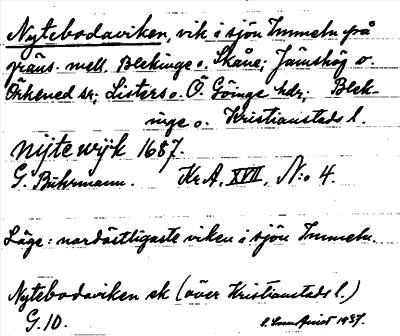 Nytebodaviken, vik i sjön Immeln på
gräns mell. Blekinge o. Skåne; Jämshög o.
Örkened sn; Listers o. Ö. Göinge hdr; Blek-
inge o. Kristianstads l.
nijtewijk 1687.
G. Buhrmann. Kr A, XVII, N:o 4.
Läge: nordöstligaste viken i sjön Immeln.
Nytebodaviken ek (över Kristianstads l.)
G. 10. 1937.